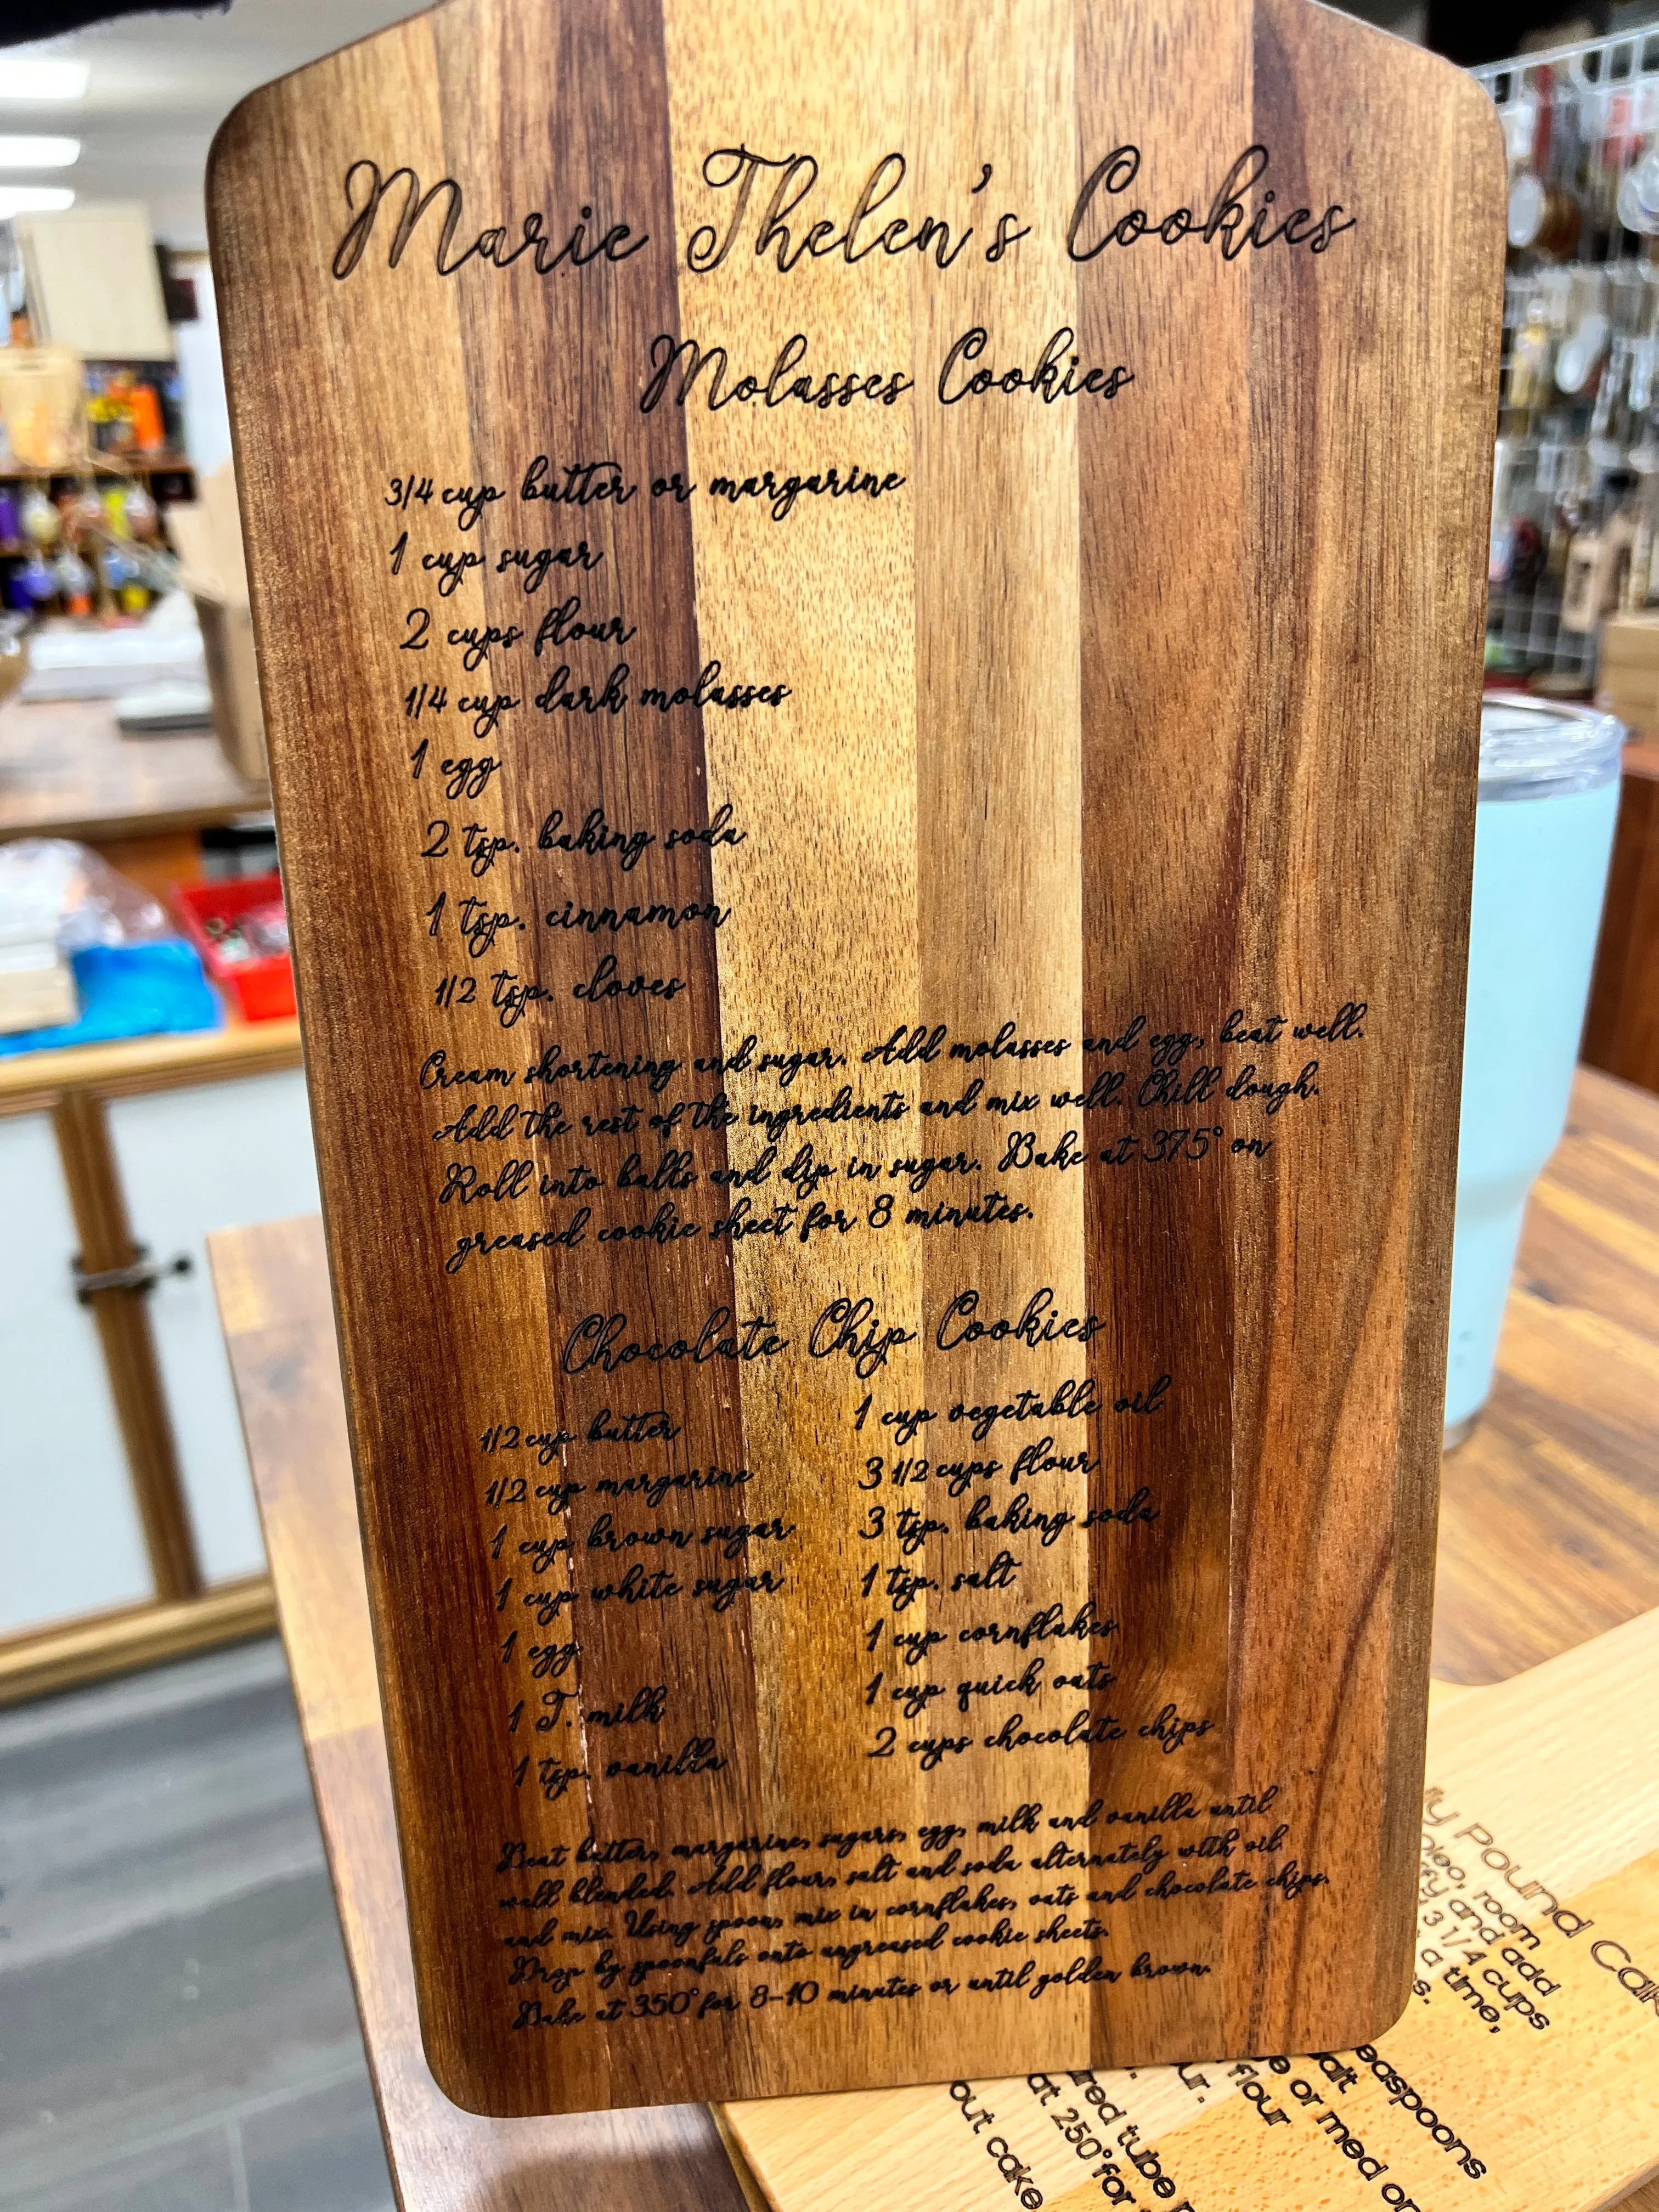 Marie Thelen's Cookies
Molasses Cookies
3/4 cup butter or margarine
1 cup sugar
2 cups flour
1/4 cup dark molasses
1 egg
2 tsp. baking soda
1 tsp. cinnamon
1/2 tsp. cloves
Cream shortening and sugar. Add molasses and egg, beat well.
Add the rest of the ingredients and mix well. Chill dough.
Roll into balls and dip in sugar. Bake at 375° on
greased cookie sheet for 8 minutes.
Chocolate Chip Cookies
1/2 cup butter
1/2 cup margarine
1 cup brown sugar
1 cup white sugar
1 egg
1 T. milk
1 tsp. vanilla
1 cup vegetable oil
3 1/2 cups flour
3 tsp. baking soda
1 tsp. salt
1 cup cornflakes
1 cup quick oats
2 cups chocolate chips
Beat butter, margarine, sugars, egg, milk and vanilla until
well blended. Add flour, salt and soda alternately with oil
and mix. Using spoon, mix in cornflakes, oats and chocolate chips.
Drop by spoonfuls onto ungreased cookie sheets.
Bake at 350° for 8-10 minutes or until golden brown.
Pound
room
and add
3 1/4 cups
a time,
easpoons
or med
flour
tube
at 250° for
out cake